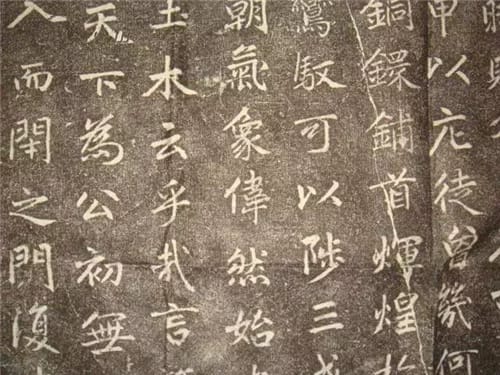 甲以庀徒曾幾何
銅鐶鋪首輝煌於
鸞馭可以陟三成
朝氣象偉然始
土木云乎哉言
天下為公初無
入而之復